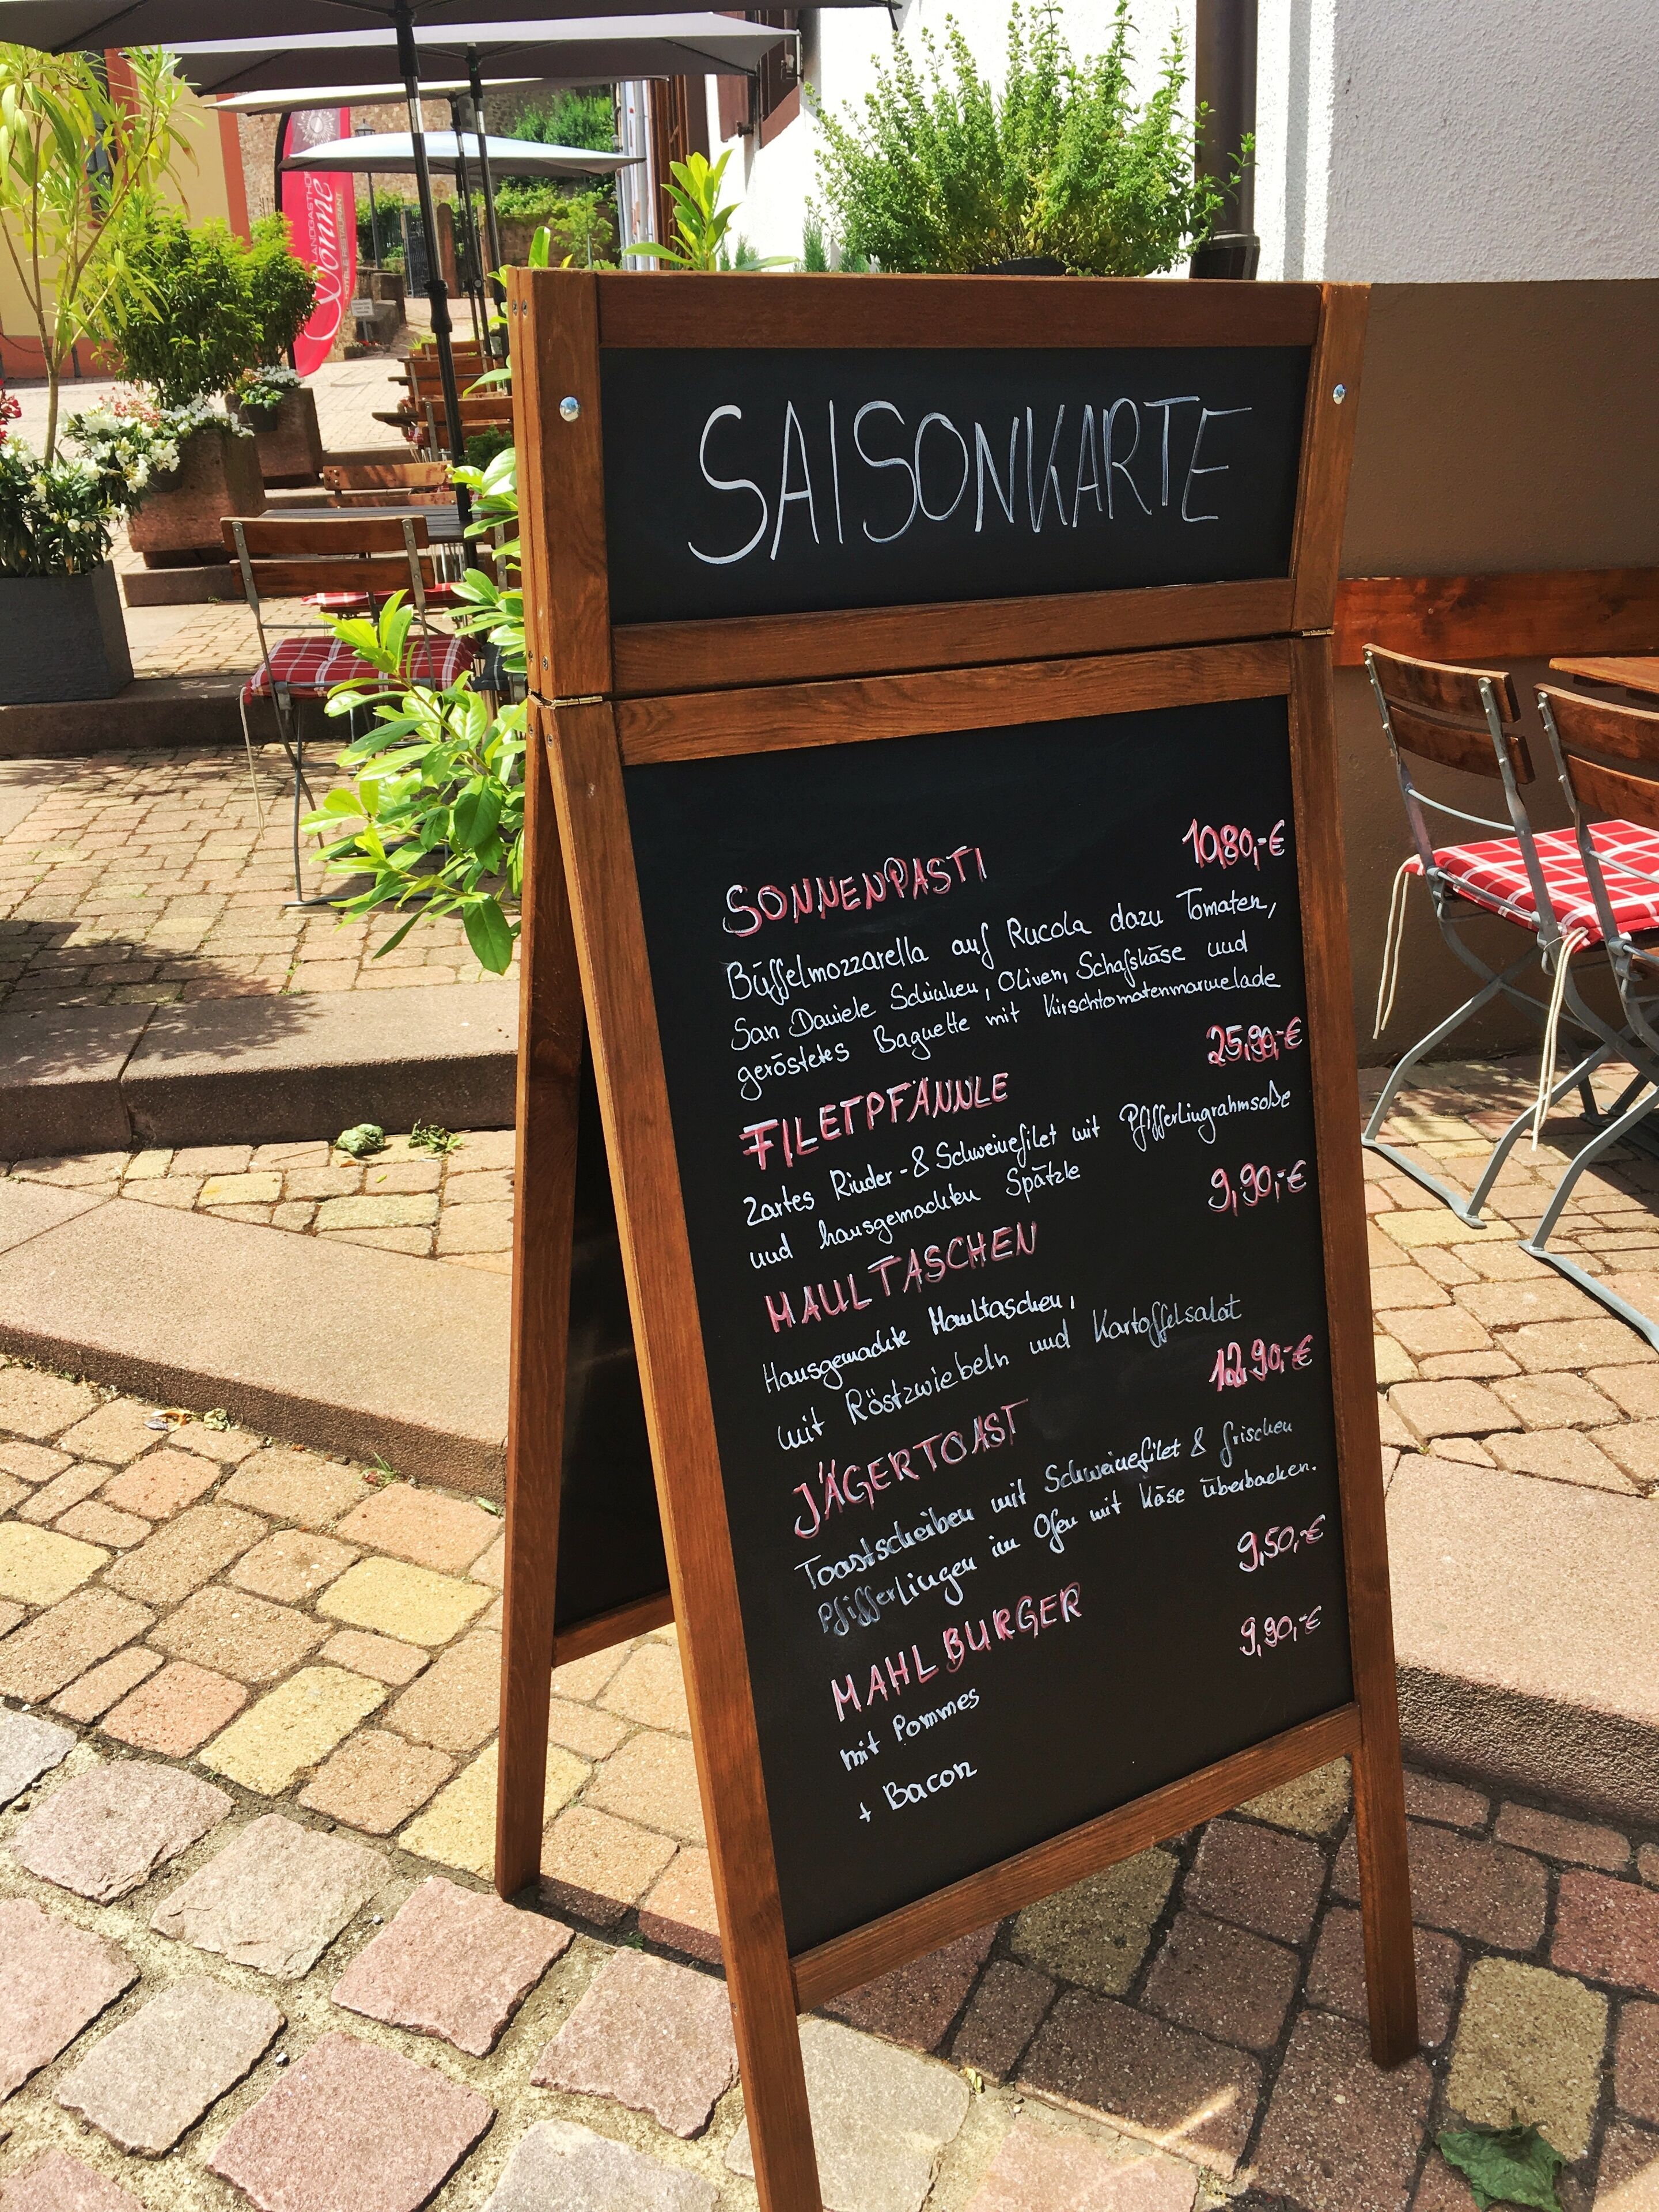 LANDGASTHOF
Sonne
HOTEL & RESTAURANT
SAISONKARTE
SONNENPASTI 10,80,-€
Büffelmozzarella auf Rucola dazu Tomaten,
San Daniele Schinken, Oliven, Schafskäse und
geröstetes Baguette mit Kirschtomatenmarmelade
FILETPFÄNNLE 25,90,-€
Zartes Rinder- & Schweinefilet mit Pfifferlingrahmsoße
und hausgemachten Spätzle
MAULTASCHEN 9,90,-€
Hausgemachte Maultaschen,
mit Röstzwiebeln und Kartoffelsalat
JÄGERTOAST 12,90,-€
Toastscheiben mit Schweinefilet & frischen
Pfifferlingen im Ofen mit Käse überbacken.
MAHLBURGER 9,50,-€
mit Pommes
+ Bacon 9,90,-€